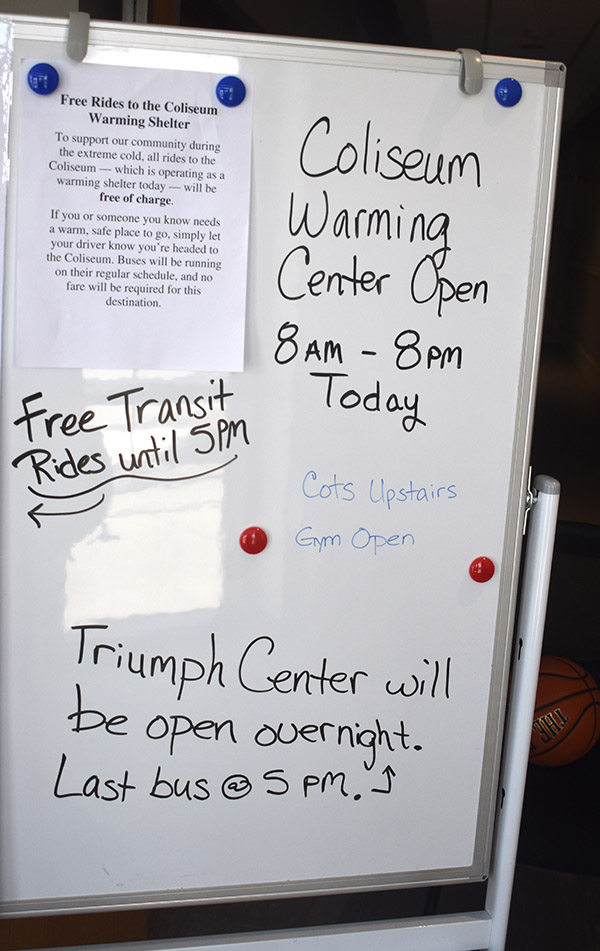 Free Rides to the Coliseum
Warming Shelter
To support our community during
the extreme cold, all rides to the
Coliseum — which is operating as a
warming shelter today — will be
free of charge.
If you or someone you know needs
a warm, safe place to go, simply let
your driver know you're headed to
the Coliseum. Buses will be running
on their regular schedule, and no
fare will be required for this
destination.
Coliseum
Warming
Center Open
8AM - 8PM
Today
Free Transit
Rides until 5PM
Cots Upstairs
Gym Open
Triumph Center will
be open overnight.
Last bus @ 5 pm.
THE